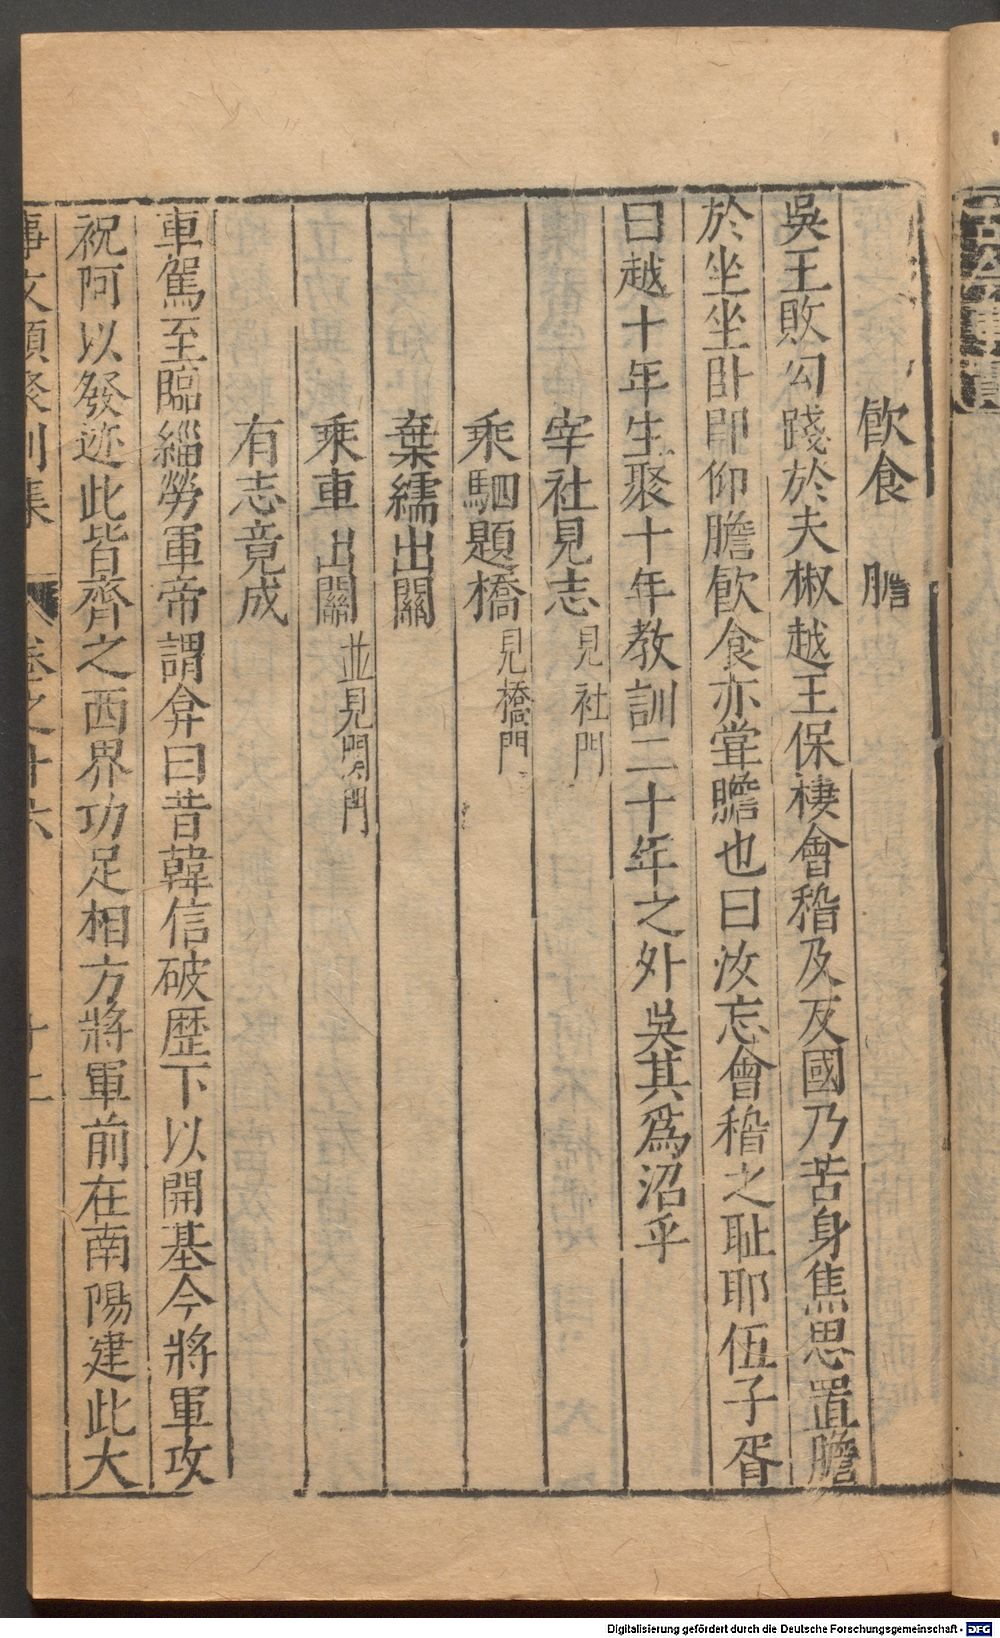 飲食　膽
吳王敗勾踐於夫椒越王保棲會稽及反國乃苦身焦思置膽
於坐坐卧即仰膽飲食亦甞膽也曰汝忘會稽之耻耶伍子胥
曰越十年生聚十年教訓二十年之外吳其爲沼乎
宰社見志見社門
乘駟題橋見橋門
棄繻出關
乘車出關並見關門
有志竟成
車駕至臨緇勞軍帝謂弇曰昔韓信破歴下以開基今將軍攻
祝阿以發迹此皆齊之西界功足相方將軍前在南陽建此大
事文類聚別集 卷之廿六
Digitalisierung gefördert durch die Deutsche Forschungsgemeinschaft - DFG